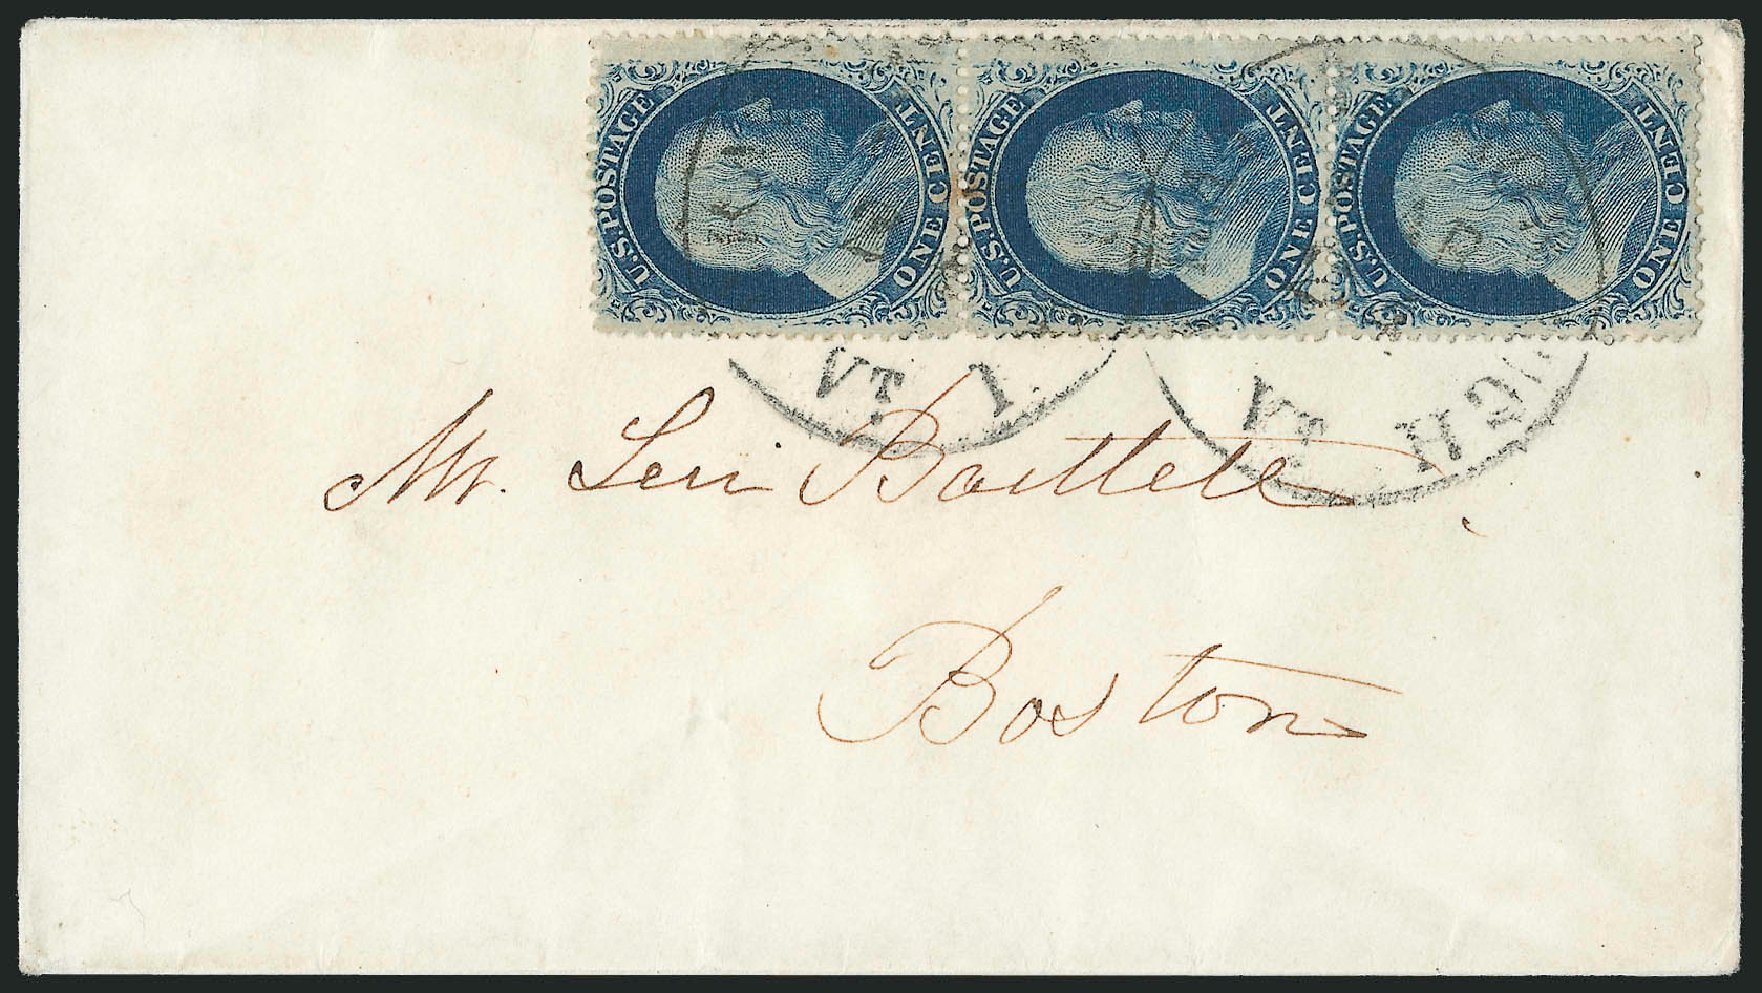 U.S. POSTAGE ONE CENT
U.S. POSTAGE ONE CENT
U.S. POSTAGE ONE CENT
VT.
VT.
Mr. Levi Bartlett
Boston